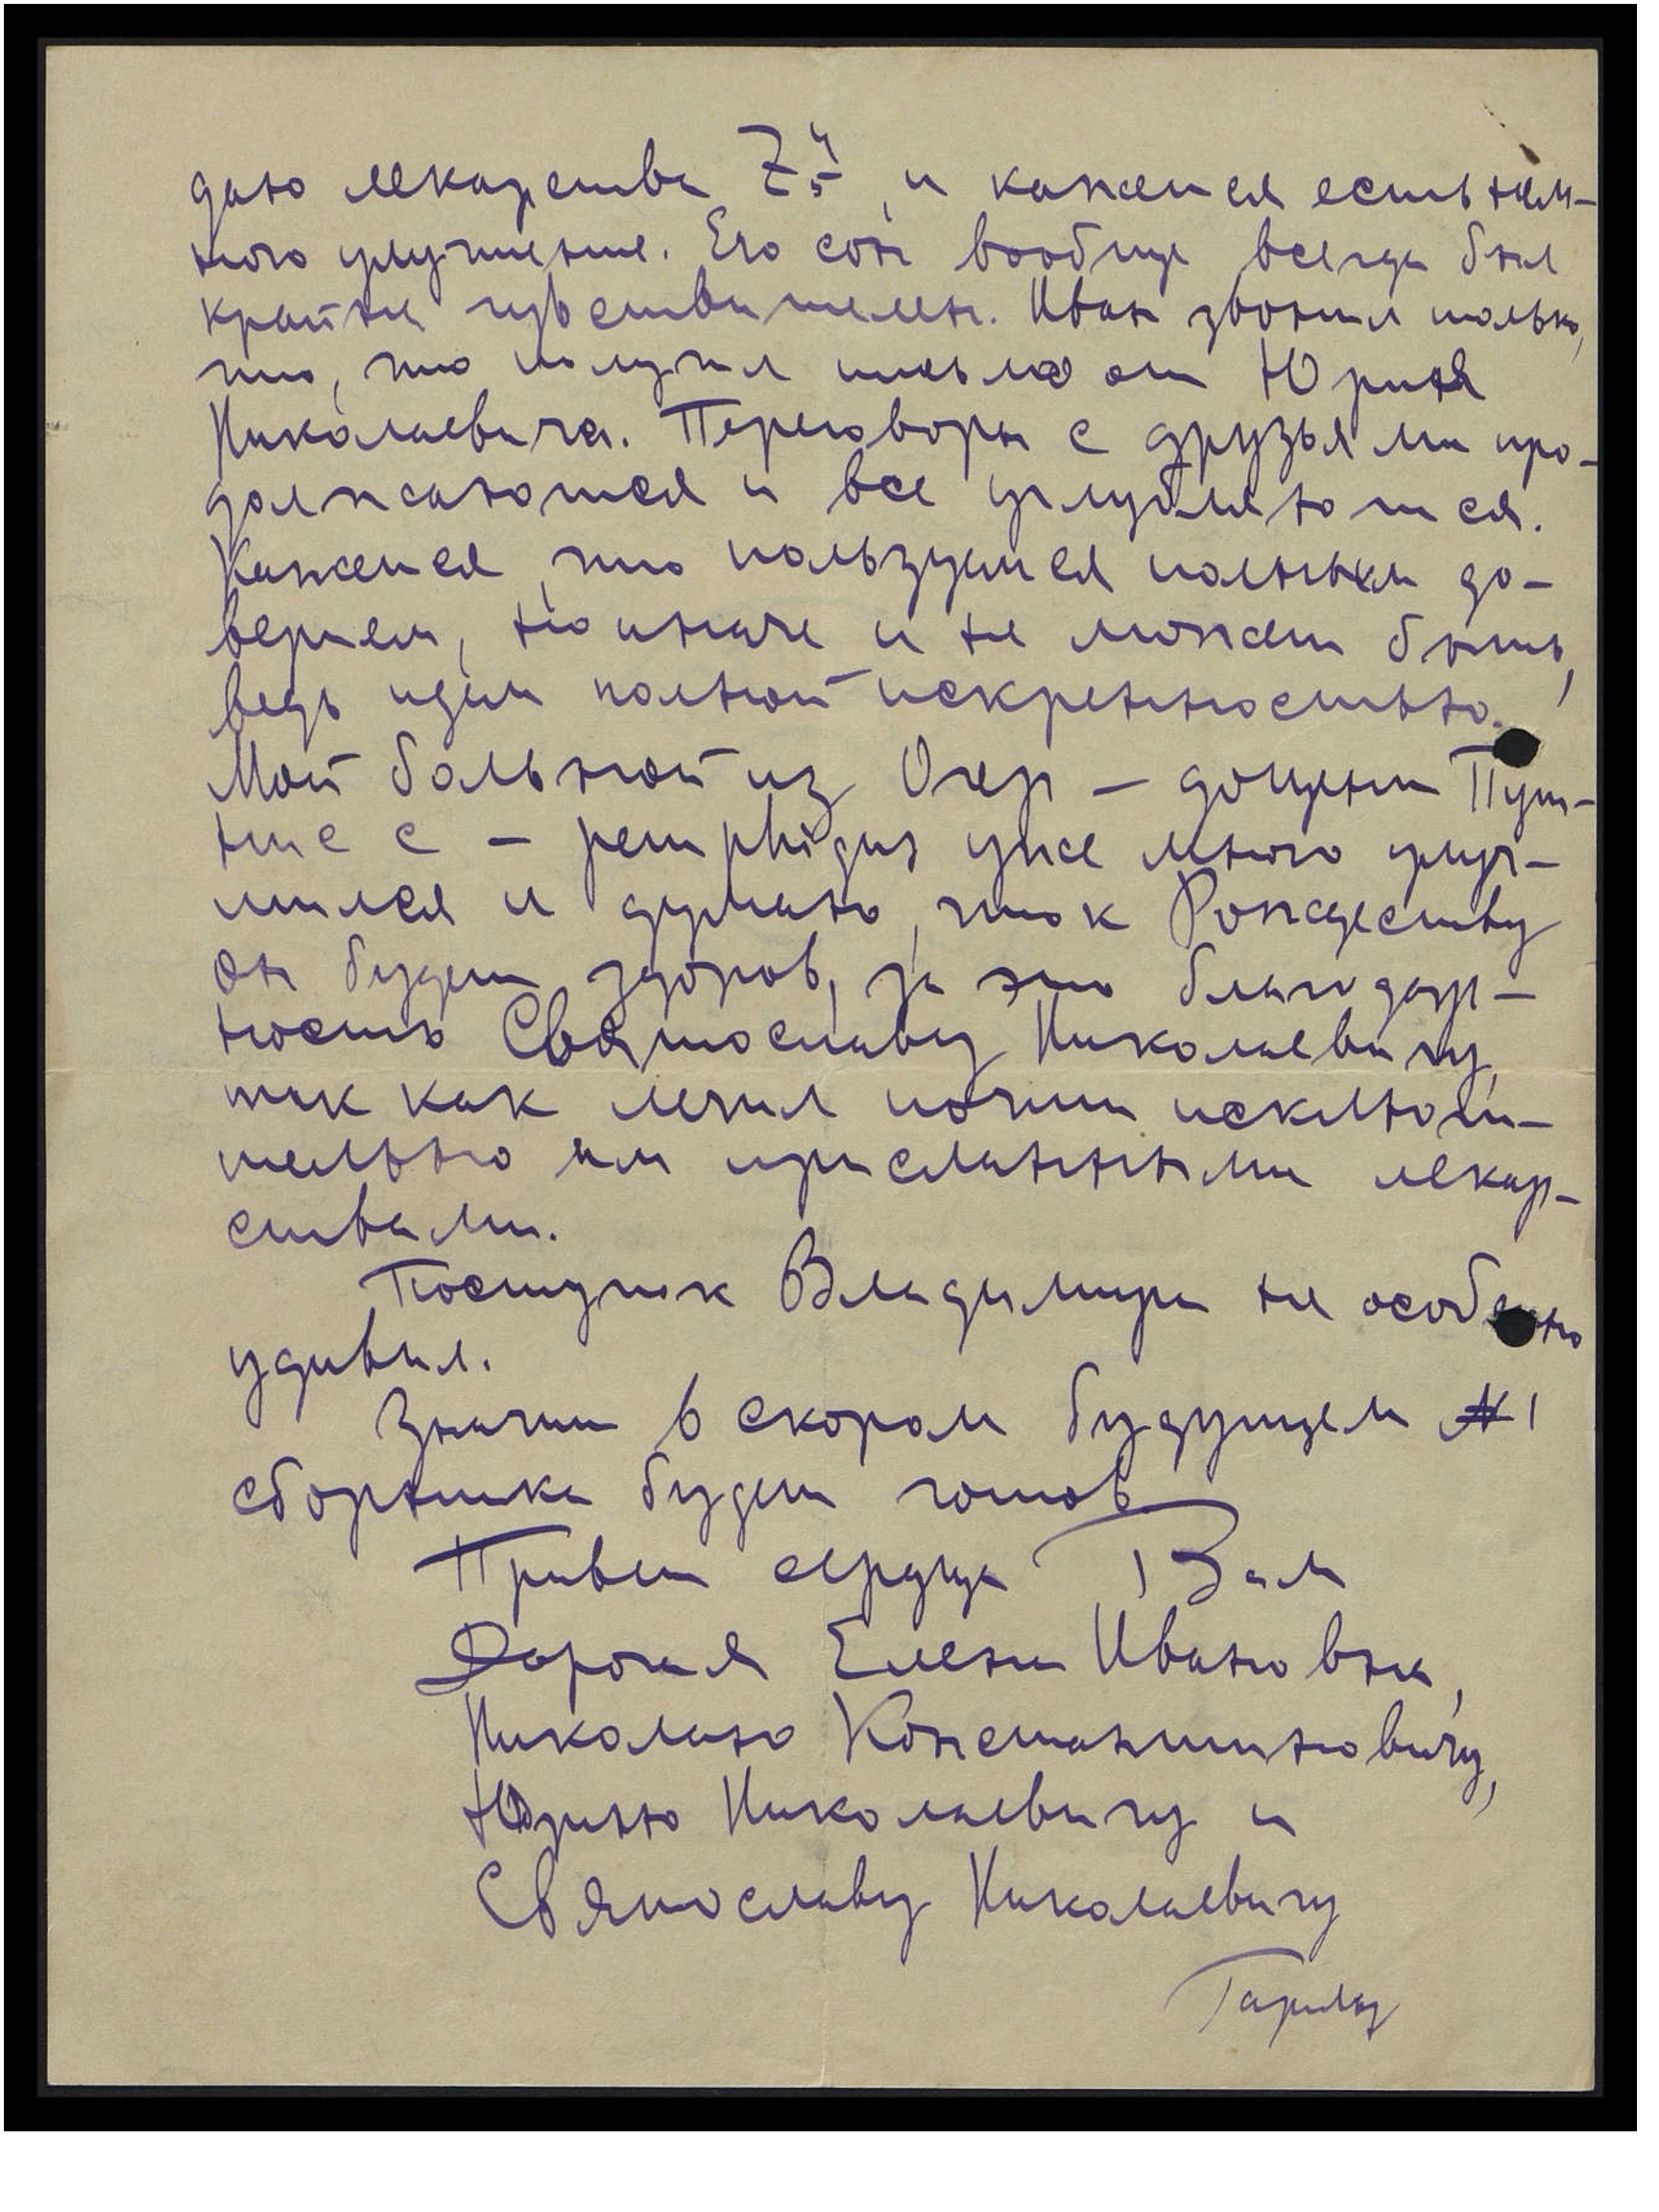 даю лекарства и кажется есть нем-
ного улучшение. Его сон вообще всегда был
крайне чувствителен. Иван звонил только,
что, что получил письмо от Юрия
Николаевича. Переговоры с друзьями про-
должаются и все углубляются.
Кажется, что пользуемся полным до-
верием, но иначе и не может быть,
ведь идем полной искренностью.
Мой больной из Огер – доцент Пут-
нис с – pemphigus уже много улуч-
шился и думаю, что к Рождеству
он будет здоров, за это благодар-
ность Святославу Николаевичу,
так как лечил почти исключи-
тельно им присланными лекар-
ствами.
Поступок Владимира не особенно
удивил.
Значит в скором будущем № 1
сборника будет готов
Привет сердца Вам
Дорогая Елена Ивановна,
Николаю Константиновичу,
Юрию Николаевичу и
Святославу Николаевичу
Гаральд